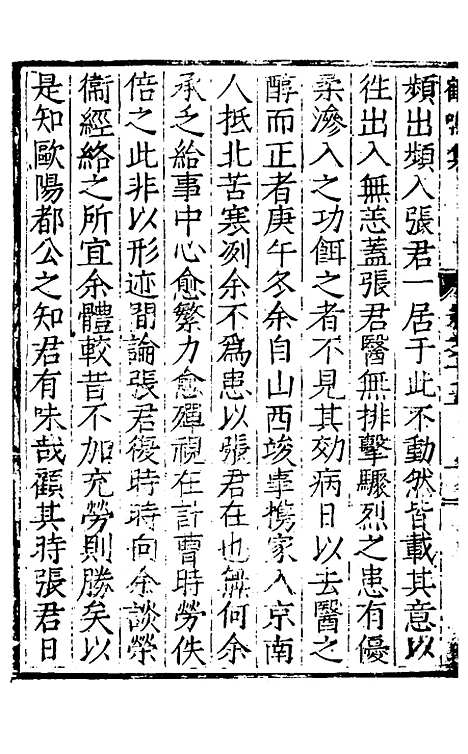 頻出頻入張君一居于此不動然皆載其意以
徃出入無恙蓋張君醫無排擊驟烈之患有優
柔滲入之功餌之者不見其効病日以去醫之
醇而正者庚午冬余自山西竣事㩗家入京南
人抵北苦寒冽余不爲患以張君在也無何余
承乏給事中心愈繁力愈殫視在計曹時勞佚
倍之此非以形迹間論張君復時時向余談榮
衞經絡之所宜余體較昔不加充勞則勝矣以
是知歐陽都公之知君有味哉顧其時張君日